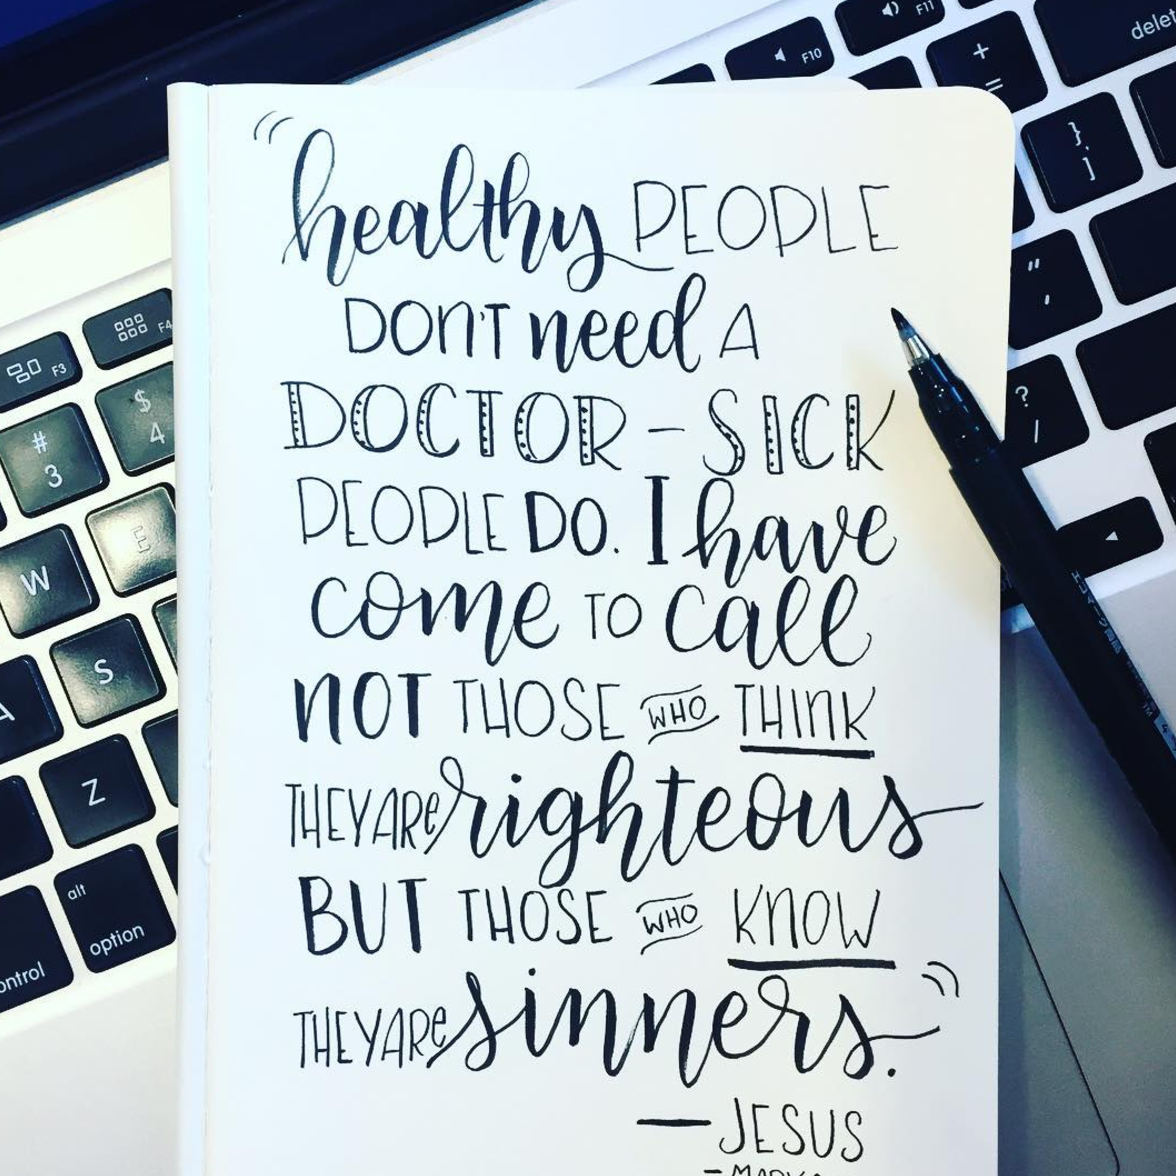 "healthy PEOPLE
DON'T need A
DOCTOR – SICK
PEOPLE DO. I have
come TO call
NOT THOSE WHO THINK
THEY ARE righteous
BUT THOSE WHO KNOW
THEY ARE sinners."
— JESUS
F10
F11
delete
+
=
}
]
"
'
?
/
F3
F4
#
3
$
4
W
E
A
S
Z
alt
option